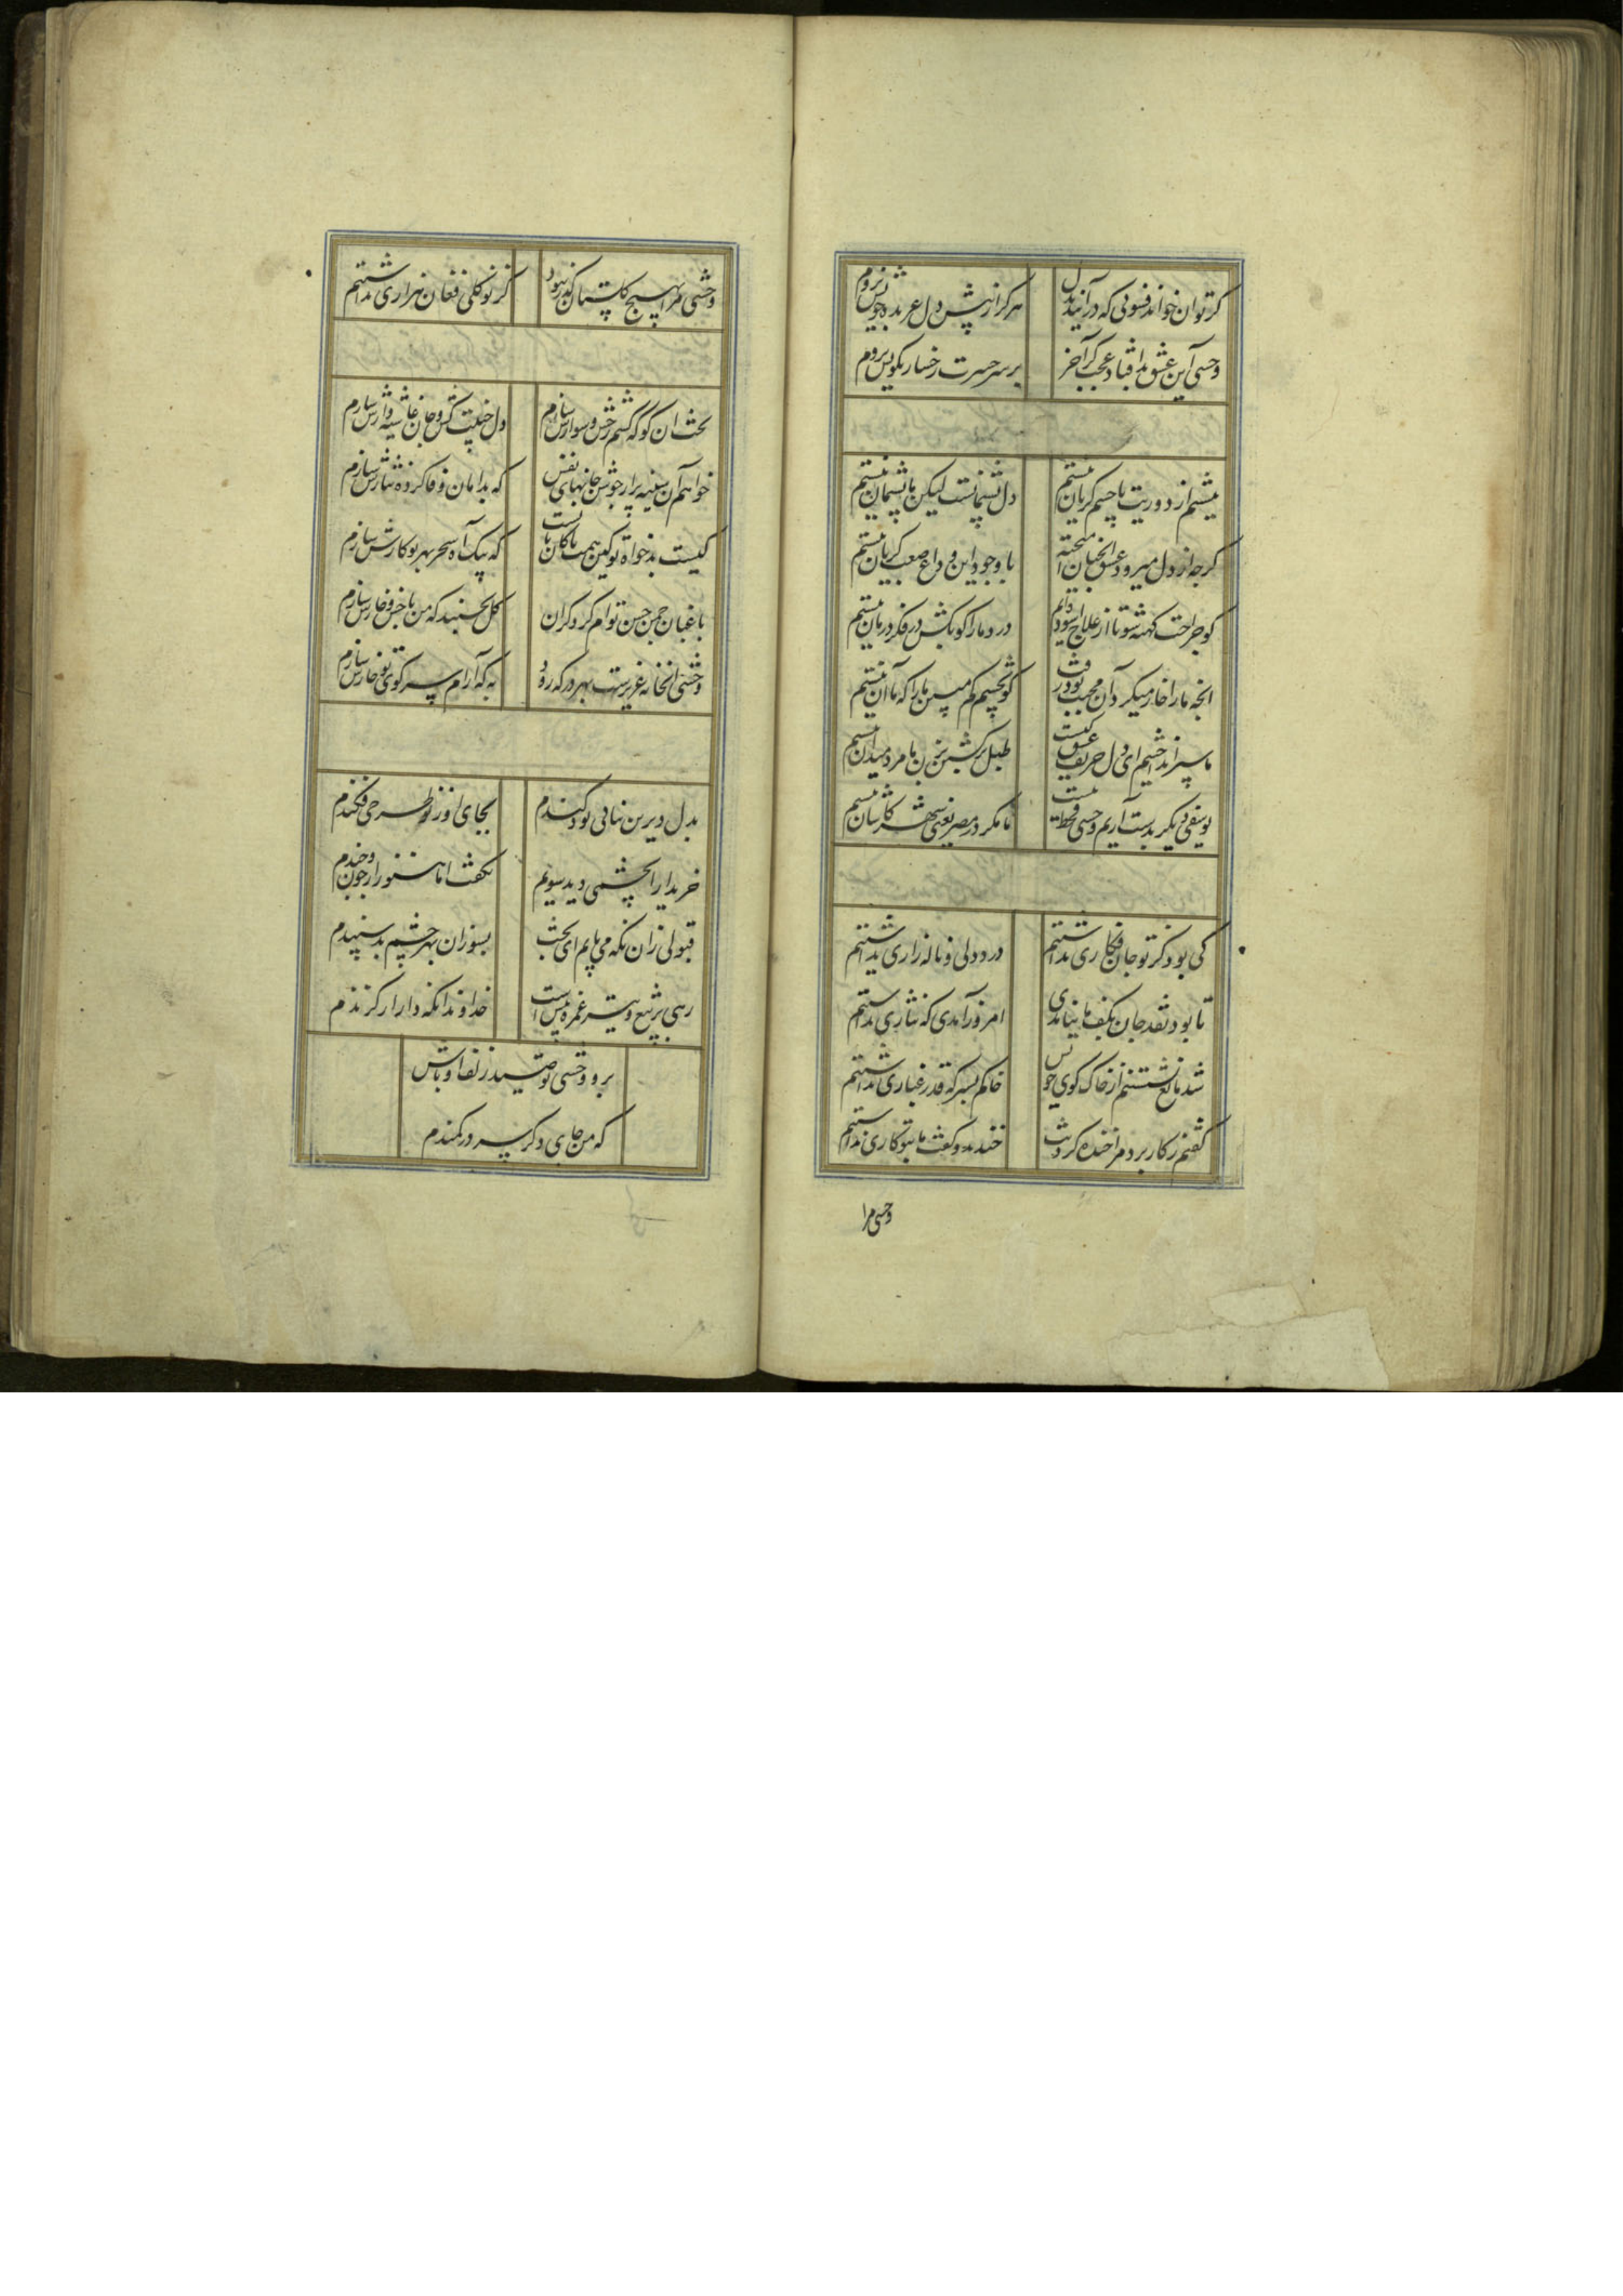 کر توان خواند فسونی که در آیند بدل
هرکز از پیش دل عربده جویش نروم
وحشی این عشق بد افتاد عجب کر آخر
بر سر حسرت رخسار نکویش نروم
میشم از دوریت با چشم کریان نیستم
دل پشیمانست لیکن ما پشیمان نیستم
کرچه از دل میرود عشق انچنان آمیخته
با وجود این وداع صعب کریان نیستم
کو جراحت کهنه شو ما از علاج آسوده ایم
درد ما را کو بکش در فکر درمان نیستم
انچه ما را خار میکرد آن محبت بود رفت
کو بچشم کم مبین ما را که ما آن نیستم
ما سپر انداختیم ای دل حریف عشق کیست
طبل برکشتن بزن ما مرد میدان نیستم
یوسفی دیکر بدست آریم وحشی قحط نیست
ما مکر در مصر یعنی شهر کاشان نیستم
کی بود کز تو جان فکاری نداشتم
درد دلی و ناله زاری نداشتم
تا بود نقد جان بکف ما نیامدی
امروز آمدی که نثاری نداشتم
شد مانع نشستنم از خاک کوی خویش
خاکم بسر که قدر غباری نداشتم
کفتم ز کار برد مرا خنده کردنت
خندید و کفت ما بتو کاری نداشتم
وحشی مرا
وحشی مرا بهیچ کلستان کذر نبود
کز نو کلی فغان هزاری نداشتم
بخت آن کو که کشم رخش و سوارش سازم
دل جنیبت کش و جان غاشیه وارش سازم
خواهم آن سینه پر از جوش جانهای نفیس
که بدامان وفا کرده نثارش سازم
کیست بدخواه تو کین همت ما کان با اوست
که بیک آه سحر بهر تو کارش سازم
باغبان چمن حسن توام کرد کران
کل نچینند که من با خس و خارش سازم
وحشی انخانه غریبست بهر در که رود
به که آرام بسر کوی تو خارش سازم
بدل دیرین بنائی بود کندم
بجای او ز نو طرحی فکندم
خریداران چشمی دید سویم
نکفت اما هنوز ارجون و چندم
قبولی زان نکه می یابم ای بخت
بسوزان بهر چشم بد سپندم
رهی پر تیغ و تیر غمزه پیش است
خداوندا نکه دار از کزندم
برو وحشی تو صید زلف او باش
که من جای دکر سر در کمندم